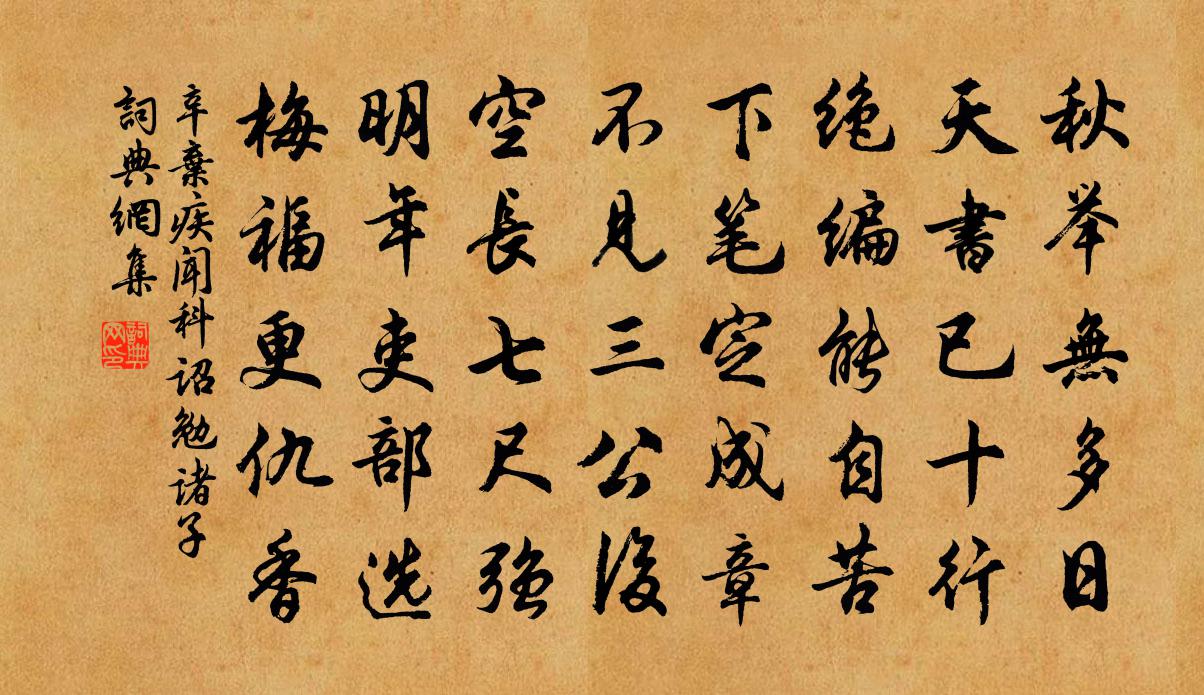 秋举無多日
天書已十行
绝编能自苦
下笔定成章
不見三公後
空長七尺强
明年吏部选
梅福更仇香
辛棄疾闻科诏勉诸子
詞典網集
詞典网印